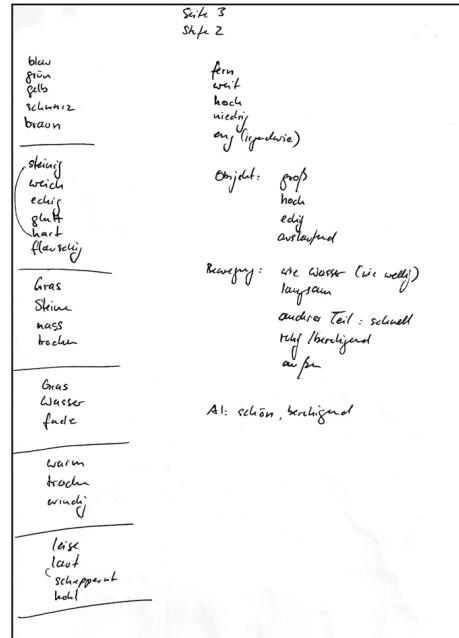 Seite 3
Stufe 2
blau
grün
gelb
schwarz
braun
steinig
weich
eckig
glatt
hart
flauschig
Gras
Steine
nass
trocken
Gras
Wasser
fade
warm
trocken
windig
leise
laut
scheppernd
hohl
fern
weit
hoch
niedrig
eng (irgendwie)
Objekt: groß
hoch
eckig
auslaufend
Bewegung: wie Wasser (wie wellig)
langsam
anderer Teil: schnell
ruhig/beruhigend
außen
AI: schön, beruhigend